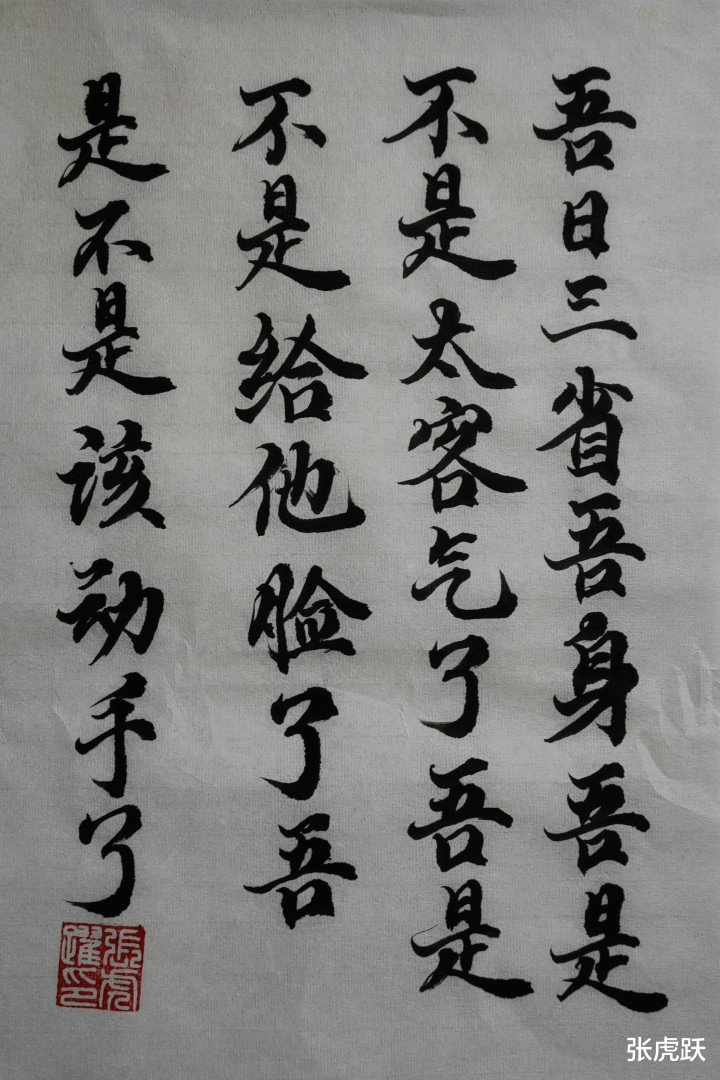 吾日三省吾身吾是
不是太客气了吾是
不是给他脸了吾
是不是该动手了
張虎
躍印
张虎跃